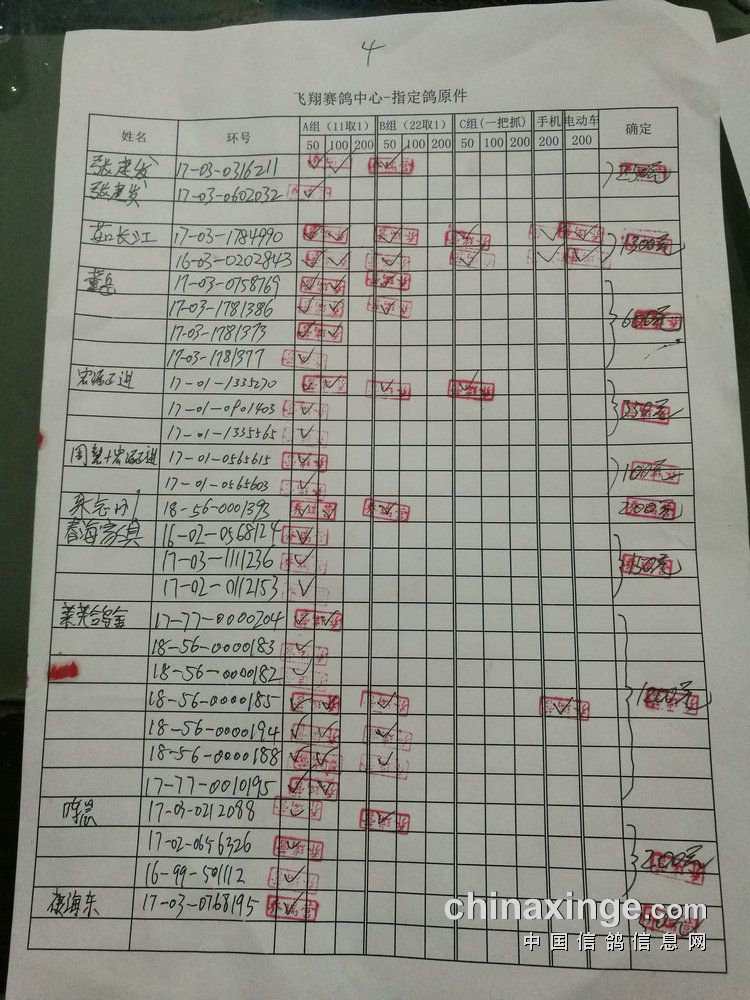 4
飞翔赛鸽中心-指定鸽原件
姓名 环号 A组（11取1） B组（22取1） C组(一把抓) 手机 电动车 确定
50 100 200 50 100 200 50 100 200 200 200
张建发 17-03-0316211 250元
张建发 17-03-0602032
茹长江 17-03-1784990 1300元
16-03-0202843
董岳 17-03-0758769 600元
17-03-1781386
17-03-1781373
17-03-1781377
17-01-1335270 350元
17-01-0901403
17-01-1335565
17-01-0565615 100元
17-01-0565603
18-56-0001393 200元
春海家具 16-02-0568124 150元
17-03-1111236
17-02-0112153
莱芙鸽舍 17-77-0000204 1000元
18-56-0000183
18-56-0000182
18-56-0000185
18-56-0000194
18-56-0000188
17-77-0010195
17-03-0212088 200元
17-02-0646326
16-99-501112
海东 17-03-0768195
chinaxinge.com
中国信鸽信息网